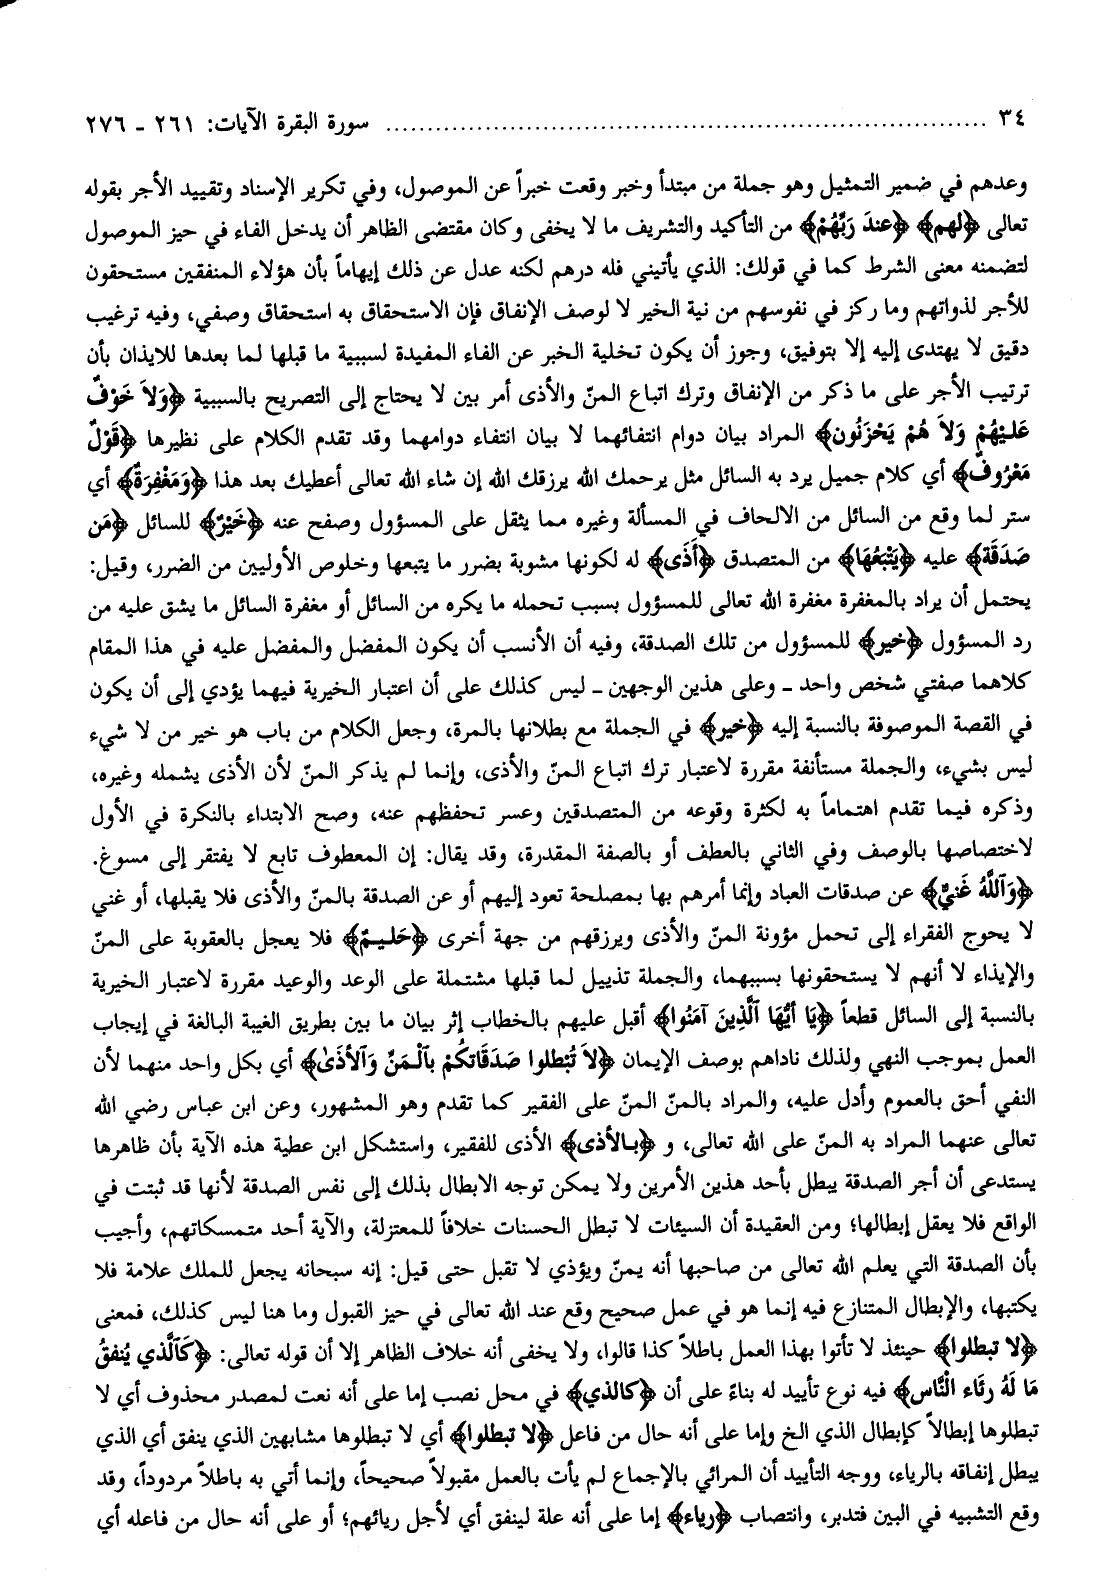 ٣٤ ........................................................................ سورة البقرة الآيات: ٢٦١ - ٢٧٦
وعدهم في ضمير التمثيل وهو جملة من مبتدأ وخبر وقعت خبراً عن الموصول، وفي تكرير الإسناد وتقييد الأجر بقوله
تعالى ﴿لهم﴾ ﴿عندَ رَبِّهُمْ﴾ من التأكيد والتشريف ما لا يخفى وكان مقتضى الظاهر أن يدخل الفاء في حيز الموصول
لتضمنه معنى الشرط كما في قولك: الذي يأتيني فله درهم لكنه عدل عن ذلك إيهاماً بأن هؤلاء المنفقين مستحقون
للأجر لذواتهم وما ركز في نفوسهم من نية الخير لا لوصف الإنفاق فإن الاستحقاق به استحقاق وصفي، وفيه ترغيب
دقيق لا يهتدى إليه إلا بتوفيق، وجوز أن يكون تخلية الخبر عن الفاء المفيدة لسببية ما قبلها لما بعدها للايذان بأن
ترتيب الأجر على ما ذكر من الإنفاق وترك اتباع المنّ والأذى أمر بين لا يحتاج إلى التصريح بالسببية ﴿وَلاَ خَوْفٌ
عَلـيْهُمْ وَلاَ هُمْ يَحْزَنُون﴾ المراد بيان دوام انتفائهما لا بيان انتفاء دوامهما وقد تقدم الكلام على نظيرها ﴿قَوْلٌ
مَعْرُوفٌ﴾ أي كلام جميل يرد به السائل مثل يرحمك الله يرزقك الله إن شاء الله تعالى أعطيك بعد هذا ﴿وَمَغْفِرَةٌ﴾ أي
ستر لما وقع من السائل من الالحاف في المسألة وغيره مما يثقل على المسؤول وصفح عنه ﴿خَيْرٌ﴾ للسائل ﴿مَن
صَدَقَة﴾ عليه ﴿يَتْبَعُهَا﴾ من المتصدق ﴿أَذَى﴾ له لكونها مشوبة بضرر ما يتبعها وخلوص الأوليين من الضرر، وقيل:
يحتمل أن يراد بالمغفرة مغفرة الله تعالى للمسؤول بسبب تحمله ما يكره من السائل أو مغفرة السائل ما يشق عليه من
رد المسؤول ﴿خير﴾ للمسؤول من تلك الصدقة، وفيه أن الأنسب أن يكون المفضل والمفضل عليه في هذا المقام
كلاهما صفتي شخص واحد ـ وعلى هذين الوجهين ـ ليس كذلك على أن اعتبار الخيرية فيهما يؤدي إلى أن يكون
في القصة الموصوفة بالنسبة إليه ﴿خير﴾ في الجملة مع بطلانها بالمرة، وجعل الكلام من باب هو خير من لا شيء
ليس بشيء، والجملة مستأنفة مقررة لاعتبار ترك اتباع المنّ والأذى، وإنما لم يذكر المنّ لأن الأذى يشمله وغيره،
وذكره فيما تقدم اهتماماً به لكثرة وقوعه من المتصدقين وعسر تحفظهم عنه، وصح الابتداء بالنكرة في الأول
لاختصاصها بالوصف وفي الثاني بالعطف أو بالصفة المقدرة، وقد يقال: إن المعطوف تابع لا يفتقر إلى مسوغ.
﴿وَٱللَّهُ غَنيٌّ﴾ عن صدقات العباد وإنما أمرهم بها بمصلحة تعود إليهم أو عن الصدقة بالمنّ والأذى فلا يقبلها، أو غني
لا يحوج الفقراء إلى تحمل مؤونة المنّ والأذى ويرزقهم من جهة أخرى ﴿حَليـمٌ﴾ فلا يعجل بالعقوبة على المنّ
والإيذاء لا أنهم لا يستحقونها بسببهما، والجملة تذييل لما قبلها مشتملة على الوعد والوعيد مقررة لاعتبار الخيرية
بالنسبة إلى السائل قطعاً ﴿يَا أيُّهَا ٱلَّذِينَ آمَنُوا﴾ أقبل عليهم بالخطاب إثر بيان ما بين بطريق الغيبة البالغة في إيجاب
العمل بموجب النهي ولذلك ناداهم بوصف الإيمان ﴿لاَ تُبْطلوا صَدَقَاتكُمْ بٱلْـمَنِّ وَٱلأذَىٰ﴾ أي بكل واحد منهما لأن
النفي أحق بالعموم وأدل عليه، والمراد بالمنّ المنّ على الفقير كما تقدم وهو المشهور، وعن ابن عباس رضي الله
تعالى عنهما المراد به المنّ على الله تعالى، و ﴿بـالأذى﴾ الأذى للفقير، واستشكل ابن عطية هذه الآية بأن ظاهرها
يستدعى أن أجر الصدقة يبطل بأحد هذين الأمرين ولا يمكن توجه الابطال بذلك إلى نفس الصدقة لأنها قد ثبتت في
الواقع فلا يعقل إبطالها؛ ومن العقيدة أن السيئات لا تبطل الحسنات خلافاً للمعتزلة، والآية أحد متمسكاتهم، وأجيب
بأن الصدقة التي يعلم الله تعالى من صاحبها أنه يمنّ ويؤذي لا تقبل حتى قيل: إنه سبحانه يجعل للملك علامة فلا
يكتبها، والإبطال المتنازع فيه إنما هو في عمل صحيح وقع عند الله تعالى في حيز القبول وما هنا ليس كذلك، فمعنى
﴿لا تبطلوا﴾ حينئذ لا تأتوا بهذا العمل باطلاً كذا قالوا، ولا يخفى أنه خلاف الظاهر إلا أن قوله تعالى: ﴿كَٱلَّذي يُنفقُ
مَا لَهُ رئَاء النَّاس﴾ فيه نوع تأييد له بناءً على أن ﴿كالذي﴾ في محل نصب إما على أنه نعت لمصدر محذوف أي لا
تبطلوها إبطالاً كإبطال الذي الخ وإما على أنه حال من فاعل ﴿لا تبطلوا﴾ أي لا تبطلوها مشابهين الذي ينفق أي الذي
يبطل إنفاقه بالرياء، ووجه التأييد أن المرائي بالإجماع لم يأت بالعمل مقبولاً صحيحاً، وإنما أتي به باطلاً مردوداً، وقد
وقع التشبيه في البين فتدبر، وانتصاب ﴿رياء﴾ إما على أنه علة لينفق أي لأجل ريائهم؛ أو على أنه حال من فاعله أي